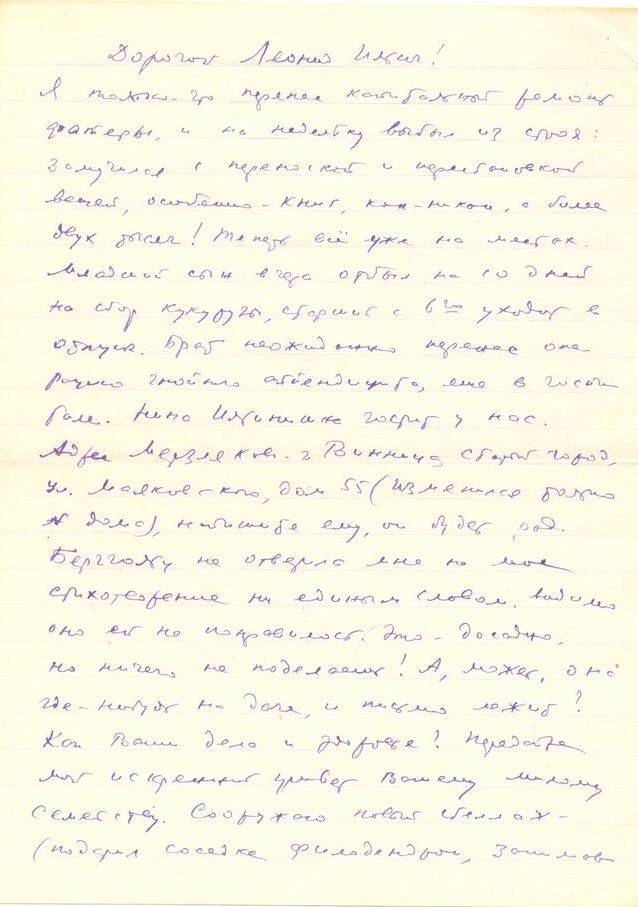 Дорогой Леонид Ильич!
Я только-что перенес капитальный ремонт
квартеры, и на недельку выбыл из строя:
Замучился с переноской и перестановкой
вещей, особенно - книг, как-никак, а более
двух тысяч! Теперь всё уже на местах.
Младший сын вчера отбыл на 10 дней
на сбор кукурузы, старший с 6го уходит в
отпуск. Брат неожиданно перенес опе-
рацию гнойного аппендицита, еще в госпи-
тале. Нина Ильинишна гостит у нас.
Адрес Мерзлякова - г Винница старый город,
ул. Маяковского, дом 55 (изменился только
№ дома), напишите ему, он будет рад.
Берггольц не ответила мне на мое
стихотворение ни единым словом. Видимо
оно ей не понравилось. Это - досадно,
но ничего не поделаешь! А, может, она
где-нибудь на даче, и письмо лежит?
Как Ваши дела и здоровье? Передайте
мой искренний привет Вашему милому
семейству. Сооружаю новый стеллаж -
(подарил соседке филодендрон,